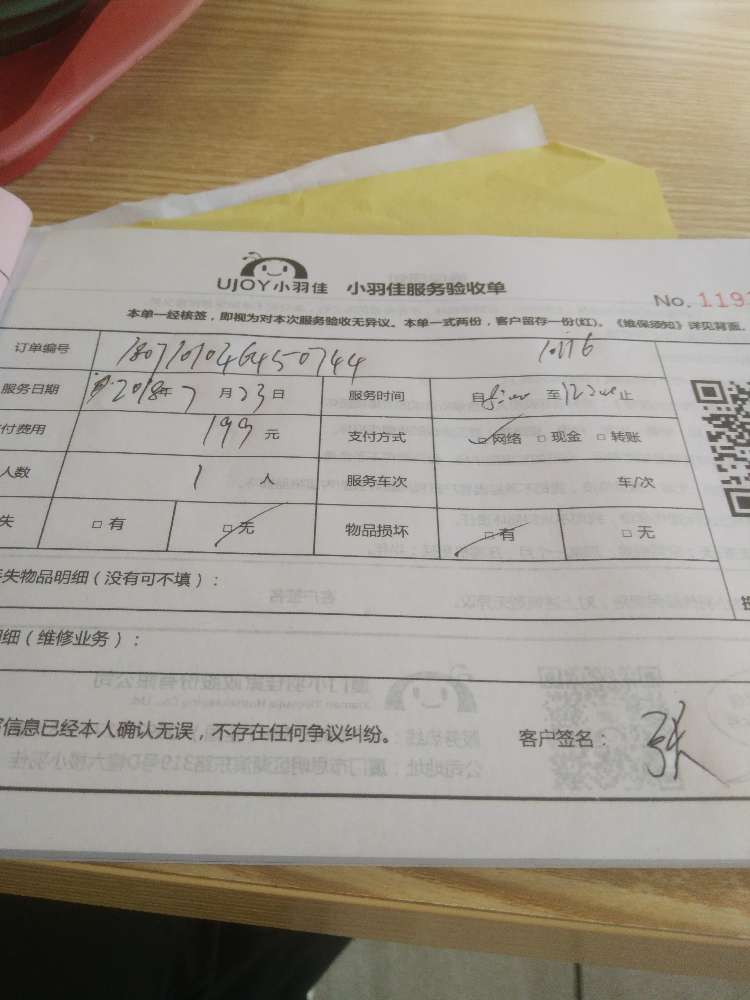 UJOY小羽佳 小羽佳服务验收单
No. 119
本单一经核签，即视为对本次服务验收无异议。本单一式两份，客户留存一份(红)。《维保须知》详见背面。
订单编号 1807101046450744
服务日期 2018年7月23日 服务时间 自 至 止
付费用 199元 支付方式 网络 现金 转账
人数 1人 服务车次 车/次
失 有 无 物品损坏 有 无
失物品明细（没有可不填）：
细（维修业务）：
信息已经本人确认无误，不存在任何争议纠纷。 客户签名：张